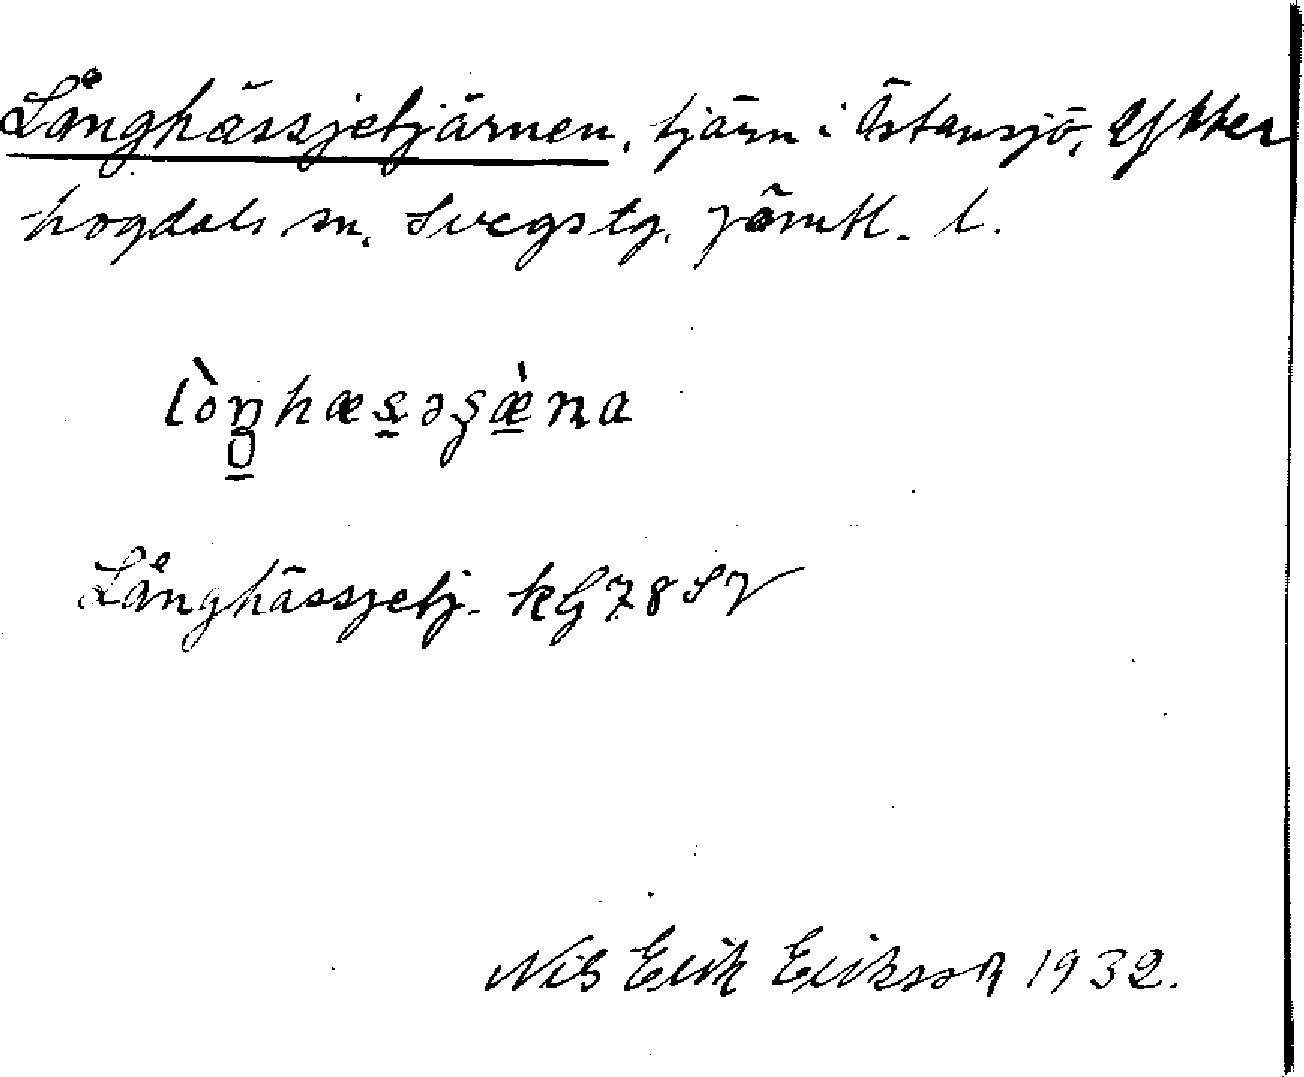 Långhässjetjärnen, tjärn i Östansjö, Ytter
hogdals sn, Svegs tg, Jämtl. l.
lòŋhæsəʂæ̀ɳa
Långhässjetj. kG 78 SV
Nils Erik Eriksson 1932.